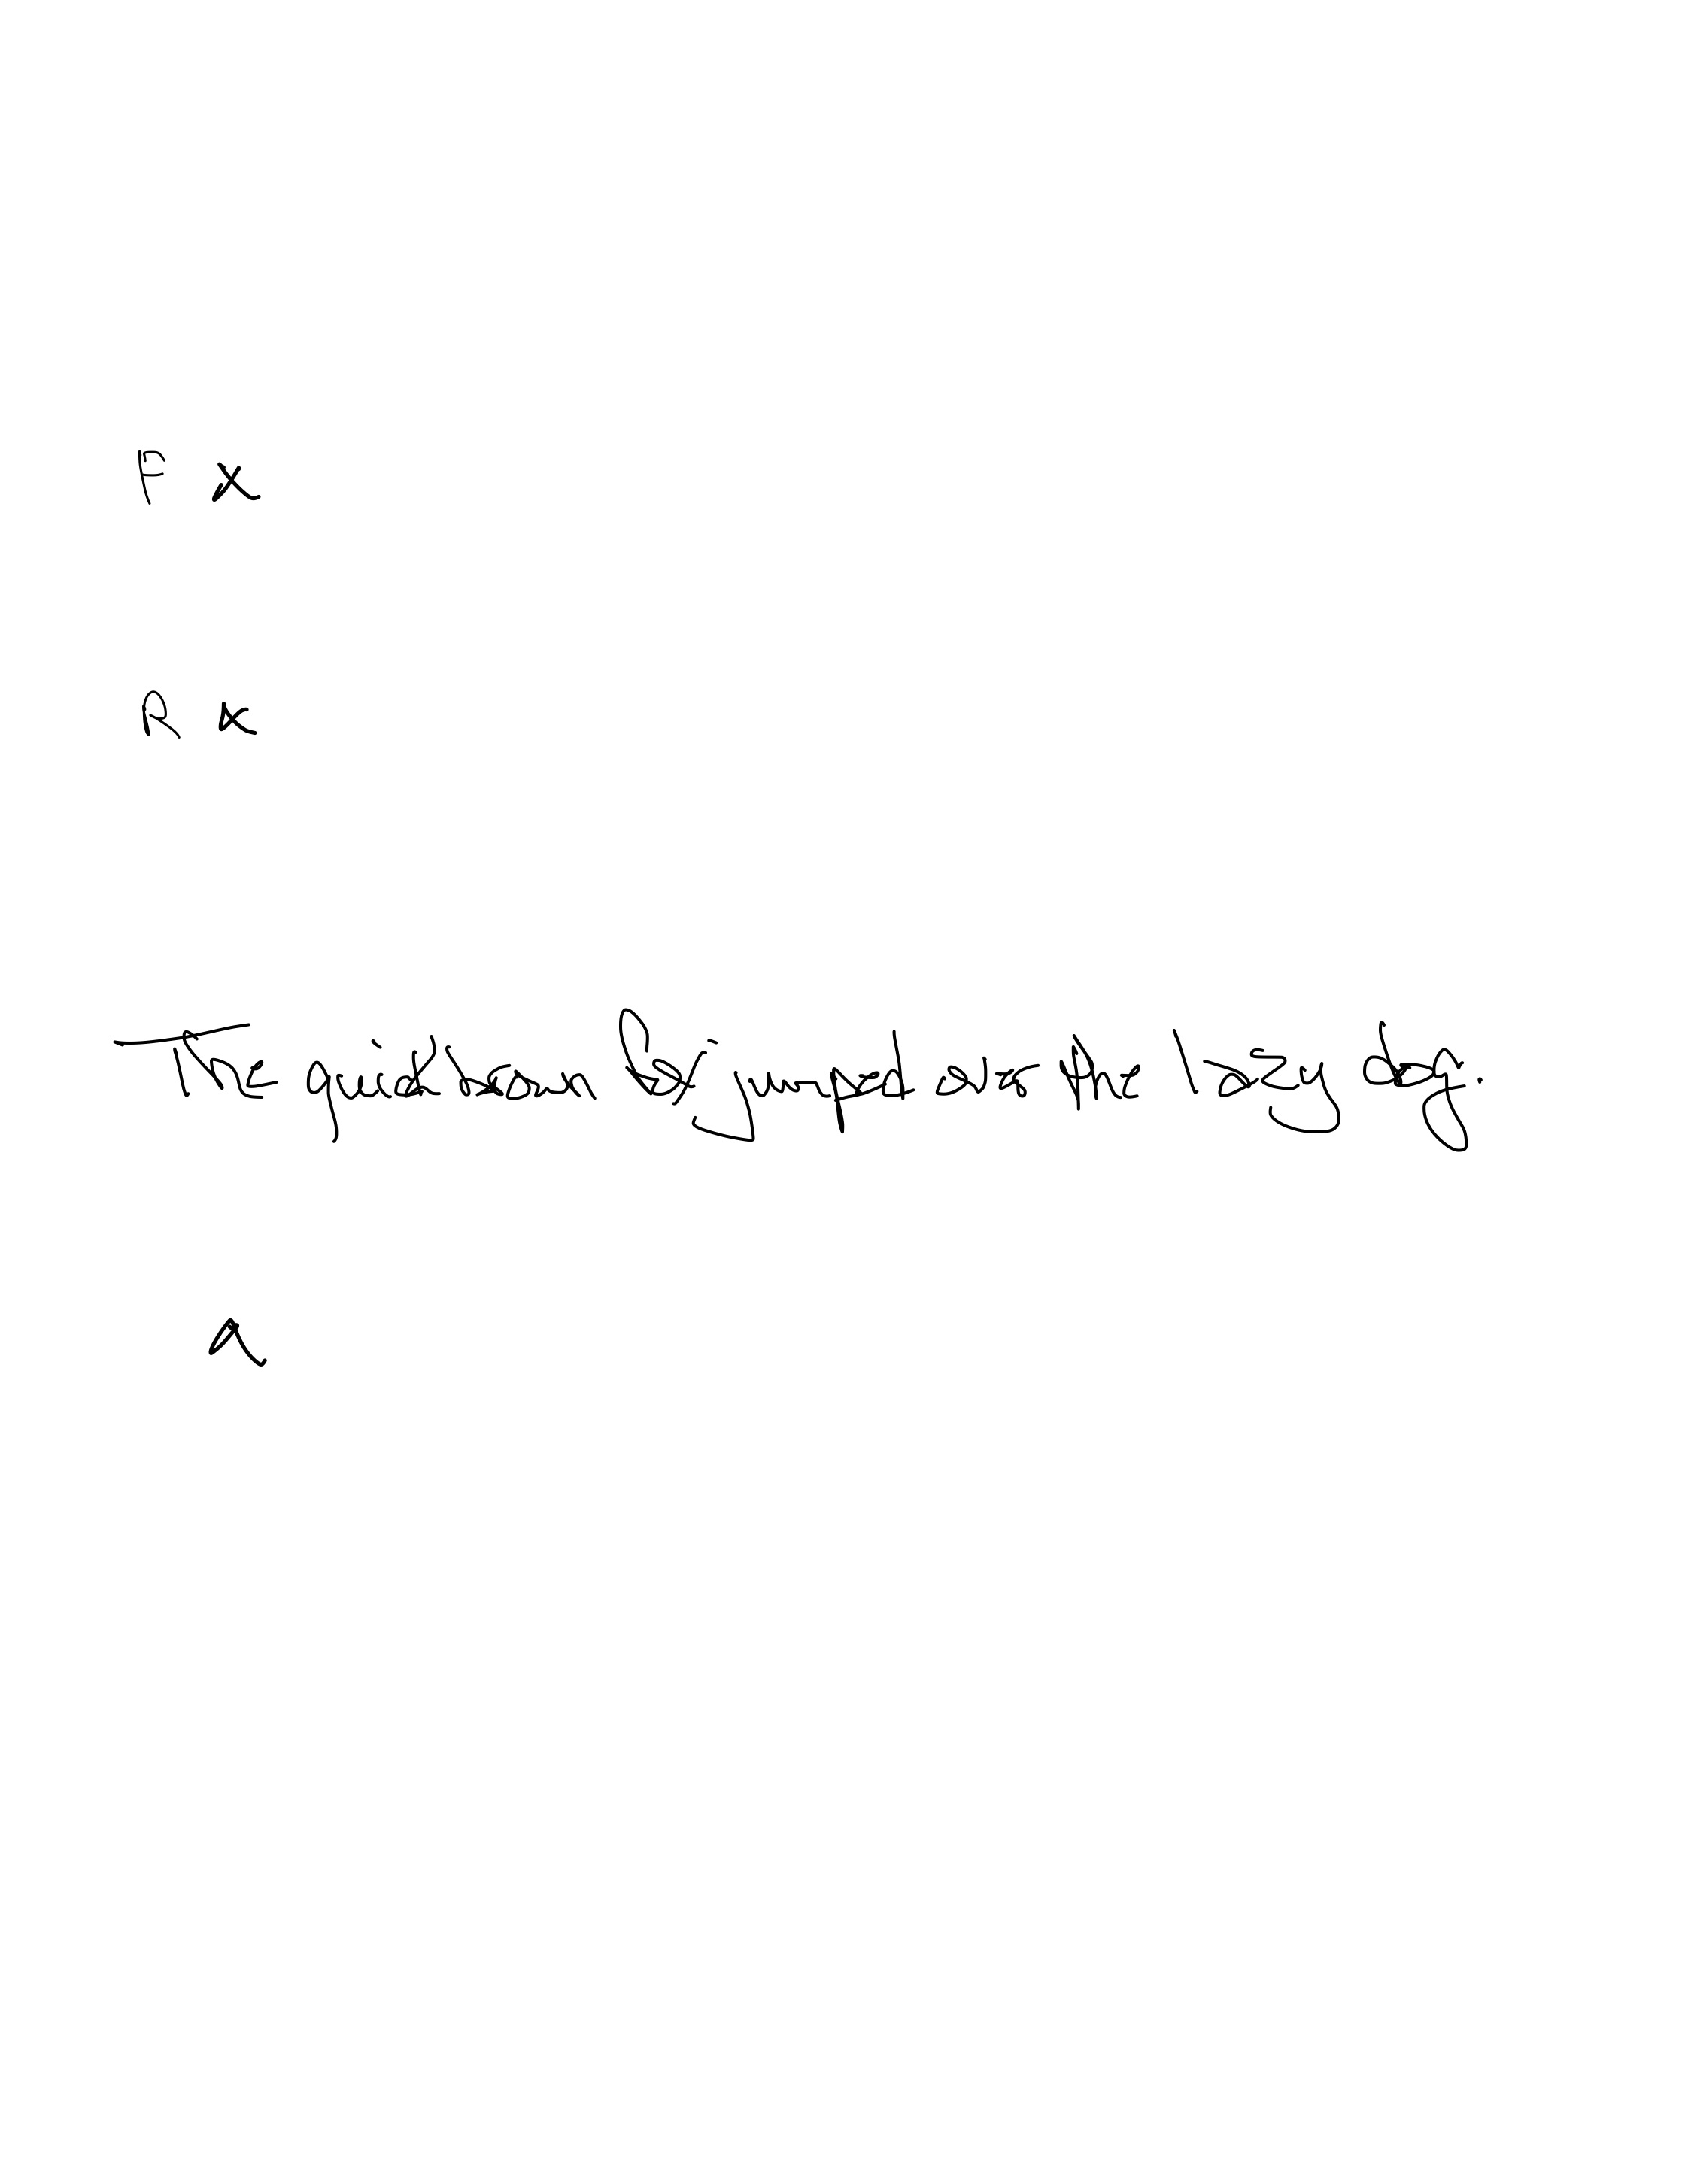 F x
R x
The quick brown fox jumped over the lazy dog.
a